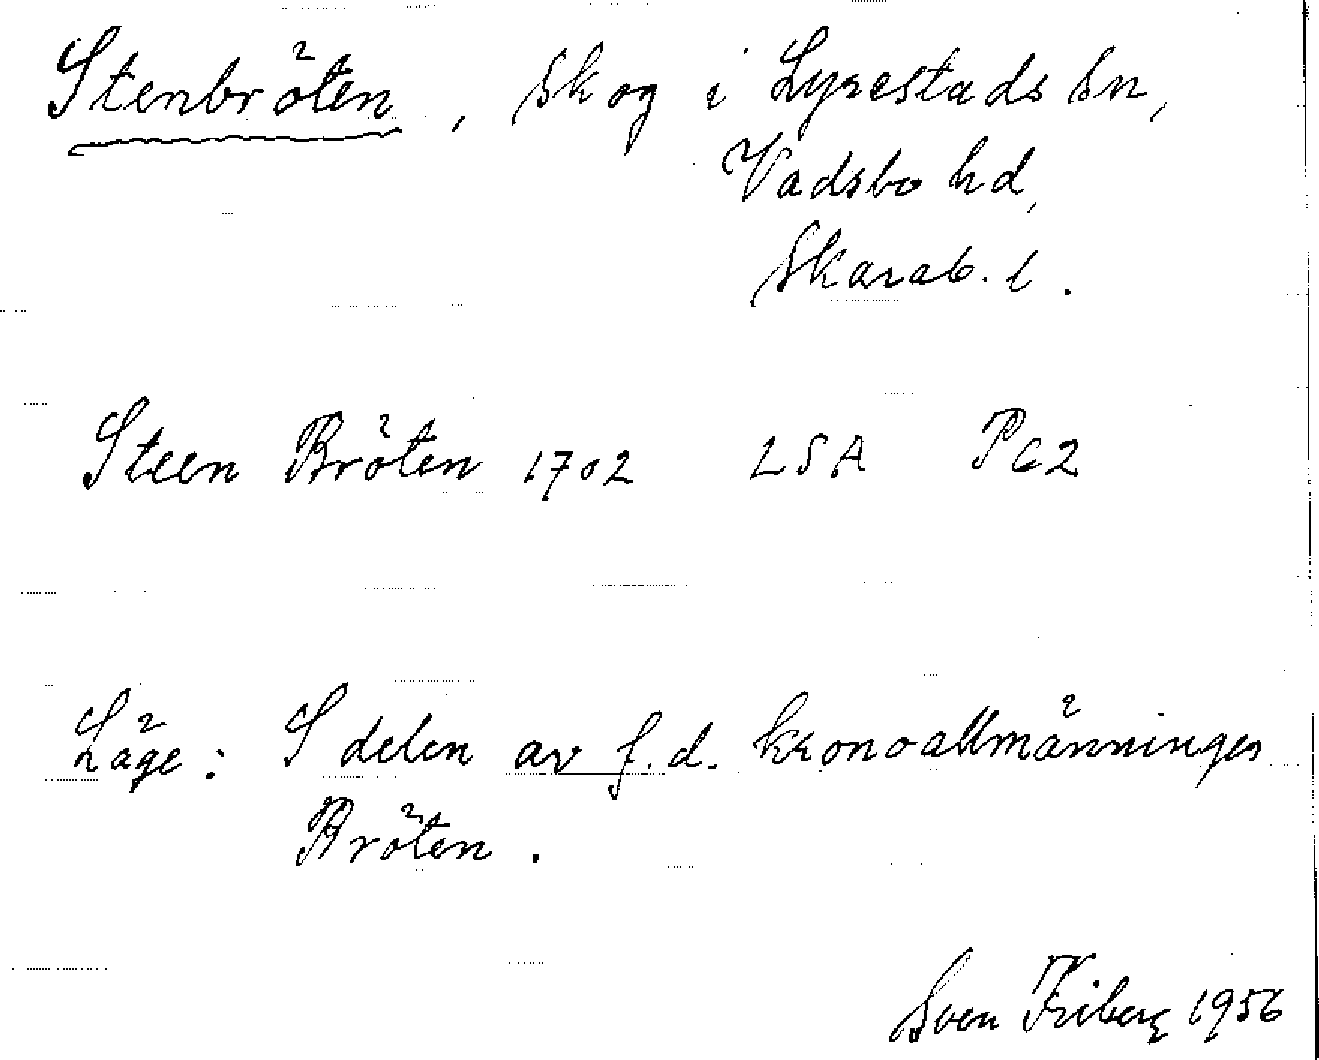 Stenbröten, Skog i Lyrestads Sn,
Vadsbo hd,
Skarab. l.
Steen Bröten 1702 LSA Pc2
Läge: S delen av f.d. kronoallmänningen
Bröten.
Sven Friberg 1956